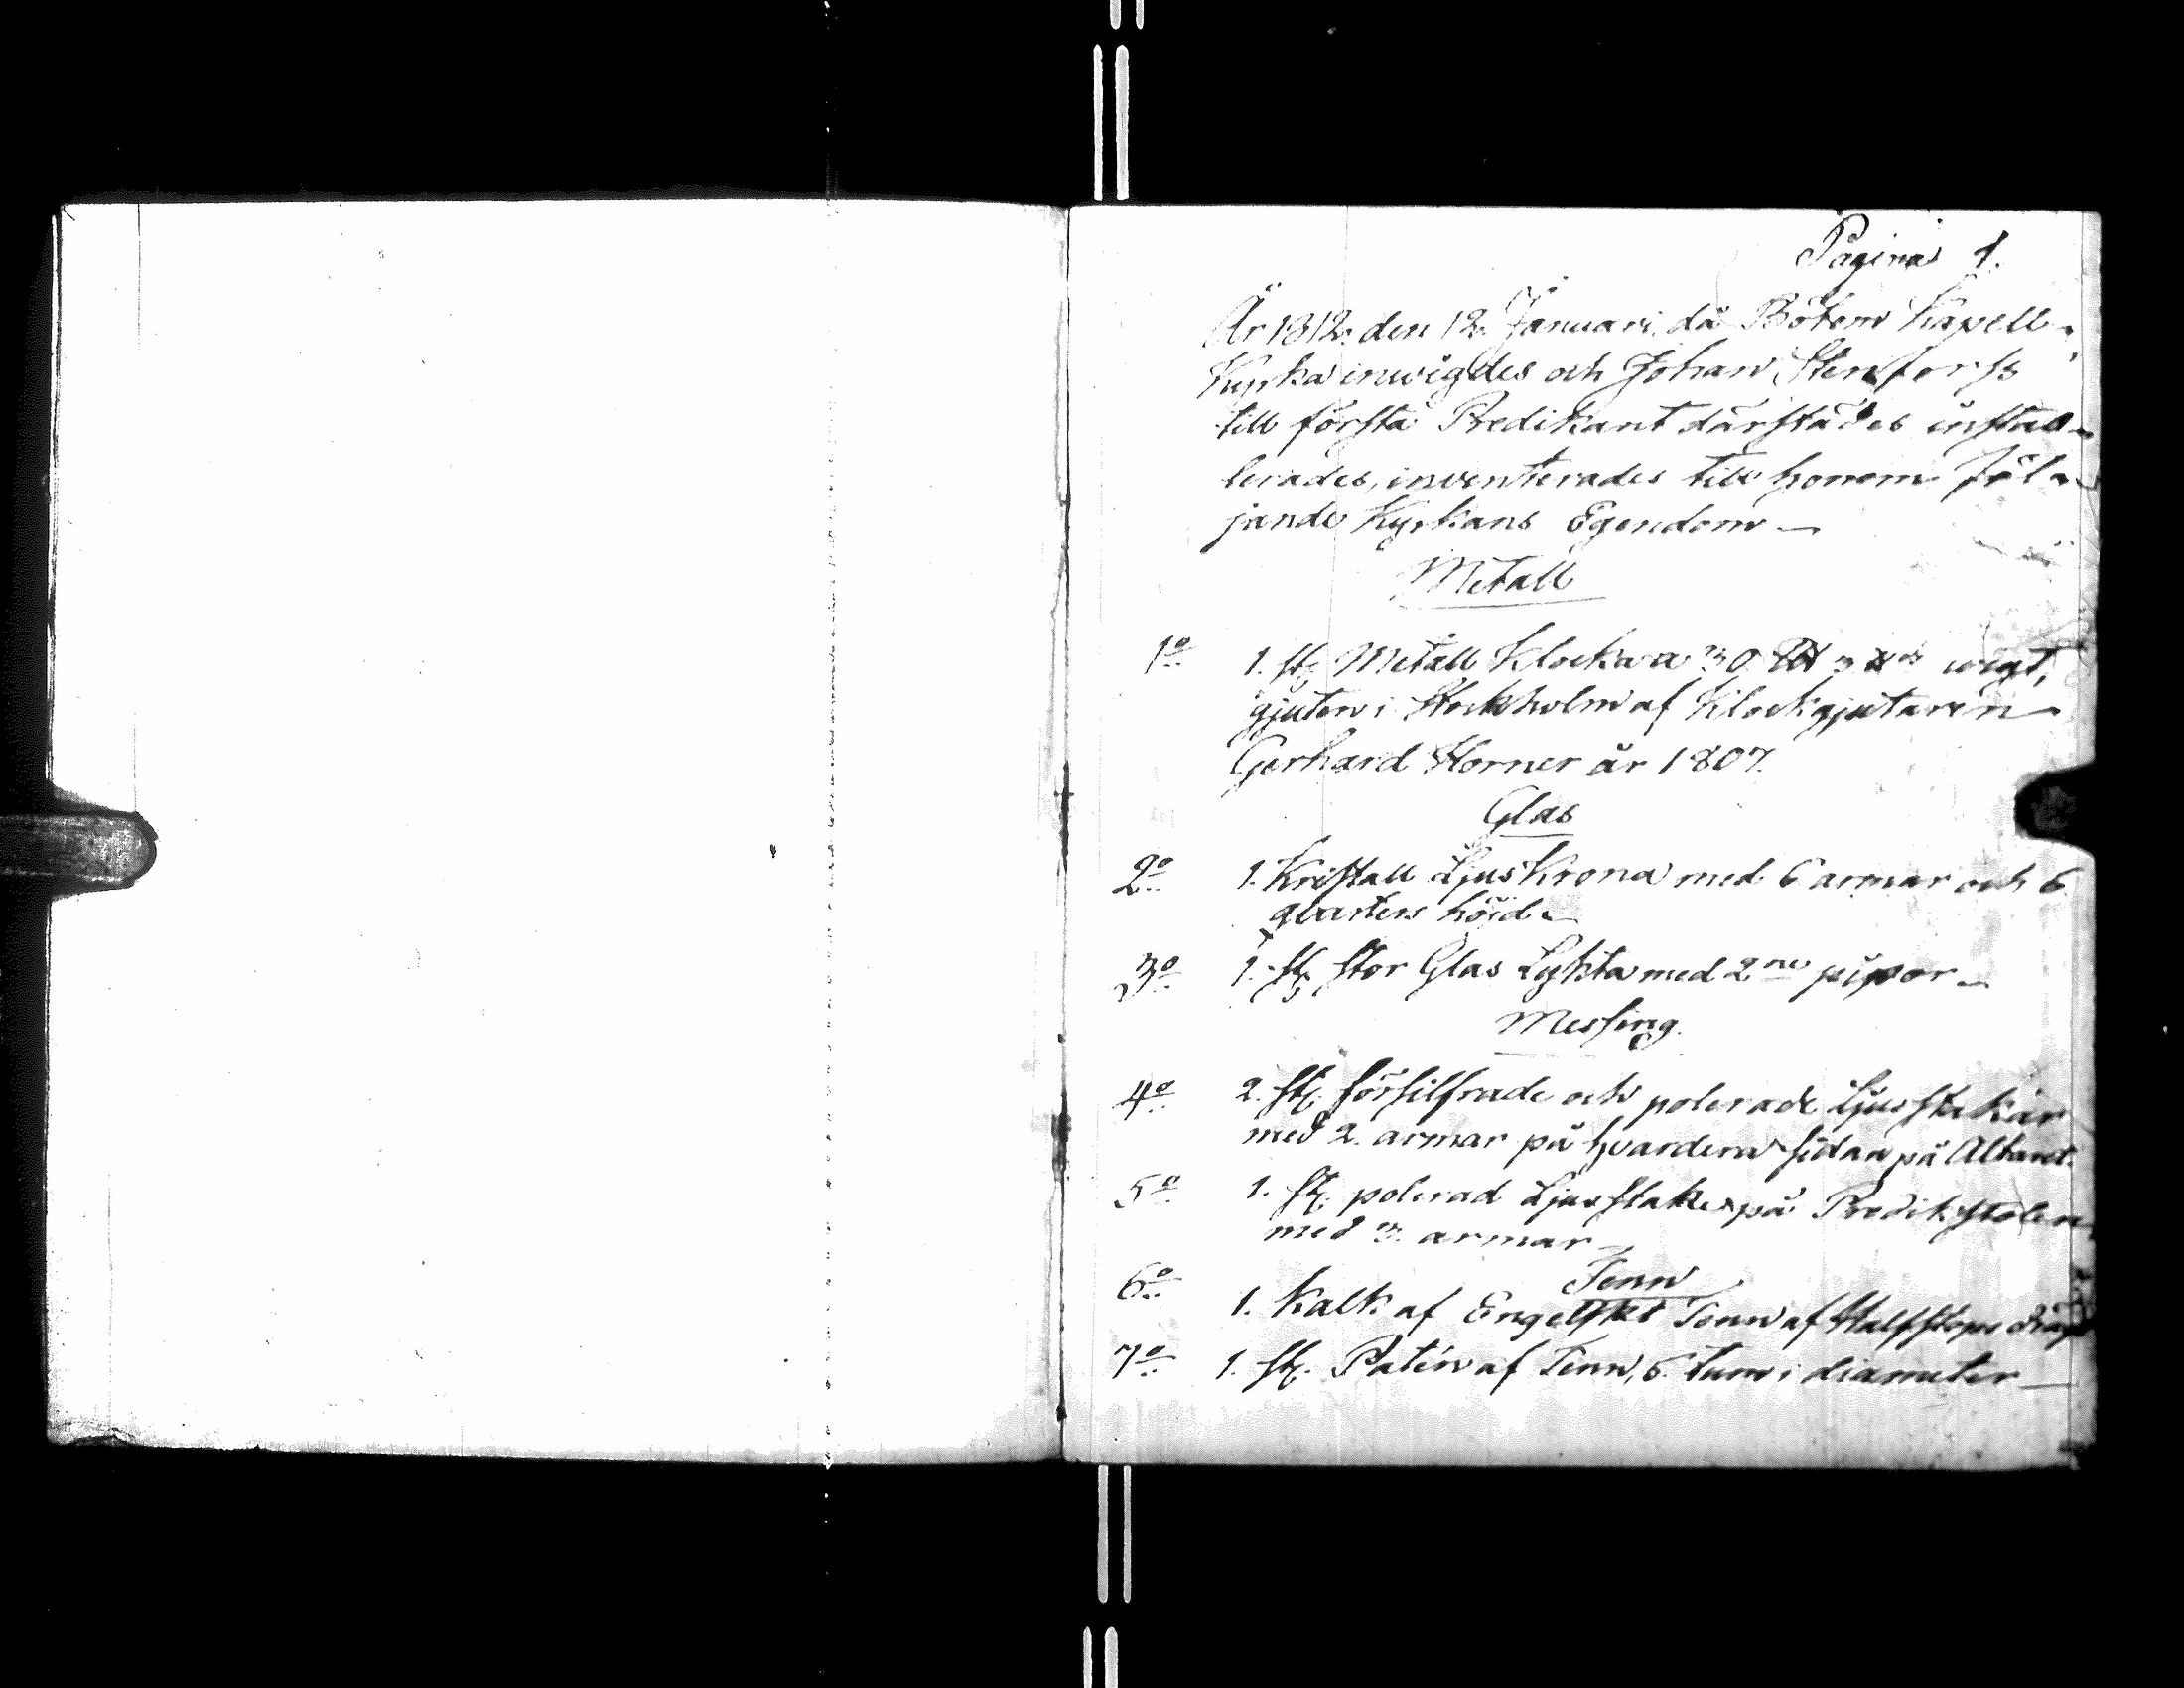 Pagina 1.
År 1812. den 12. Januari, då Bötom Kapell-
Kyrka inwigdes och Johan Stenforss
till första Predikant därstädes instal-
lerades, inventerades till honom föl-
jande Kyrkans Egendom —
Metall
1o 1. st. Metall Klocka a 30 wigt,
gjuten i Stockholm af Klockgjutaren
Gerhard Horner år 1807.
Glas
2o 1. Kristall Ljus Krona med 6 armar och 6
qvarters höjd.
3o 1. st. stor Glas Lykta med 2ne pipor —
Messing.
4o 2. st. försilfrade och polerade Ljusstakar
med 2. armar på hvardera sidan på Altaret.
5o 1. st. polerad Ljusstake på Predikstolen
med 3. armar —
Tenn
6o 1. Kalk af Engelskt Tenn af Halfstops
7o 1. st. Patén af Tenn, 6. tum i diameter —